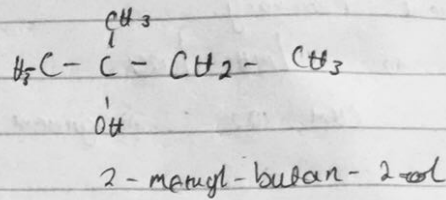 CH3
H3C - C - CH2 - CH3
OH
2-methyl-butan-2-ol